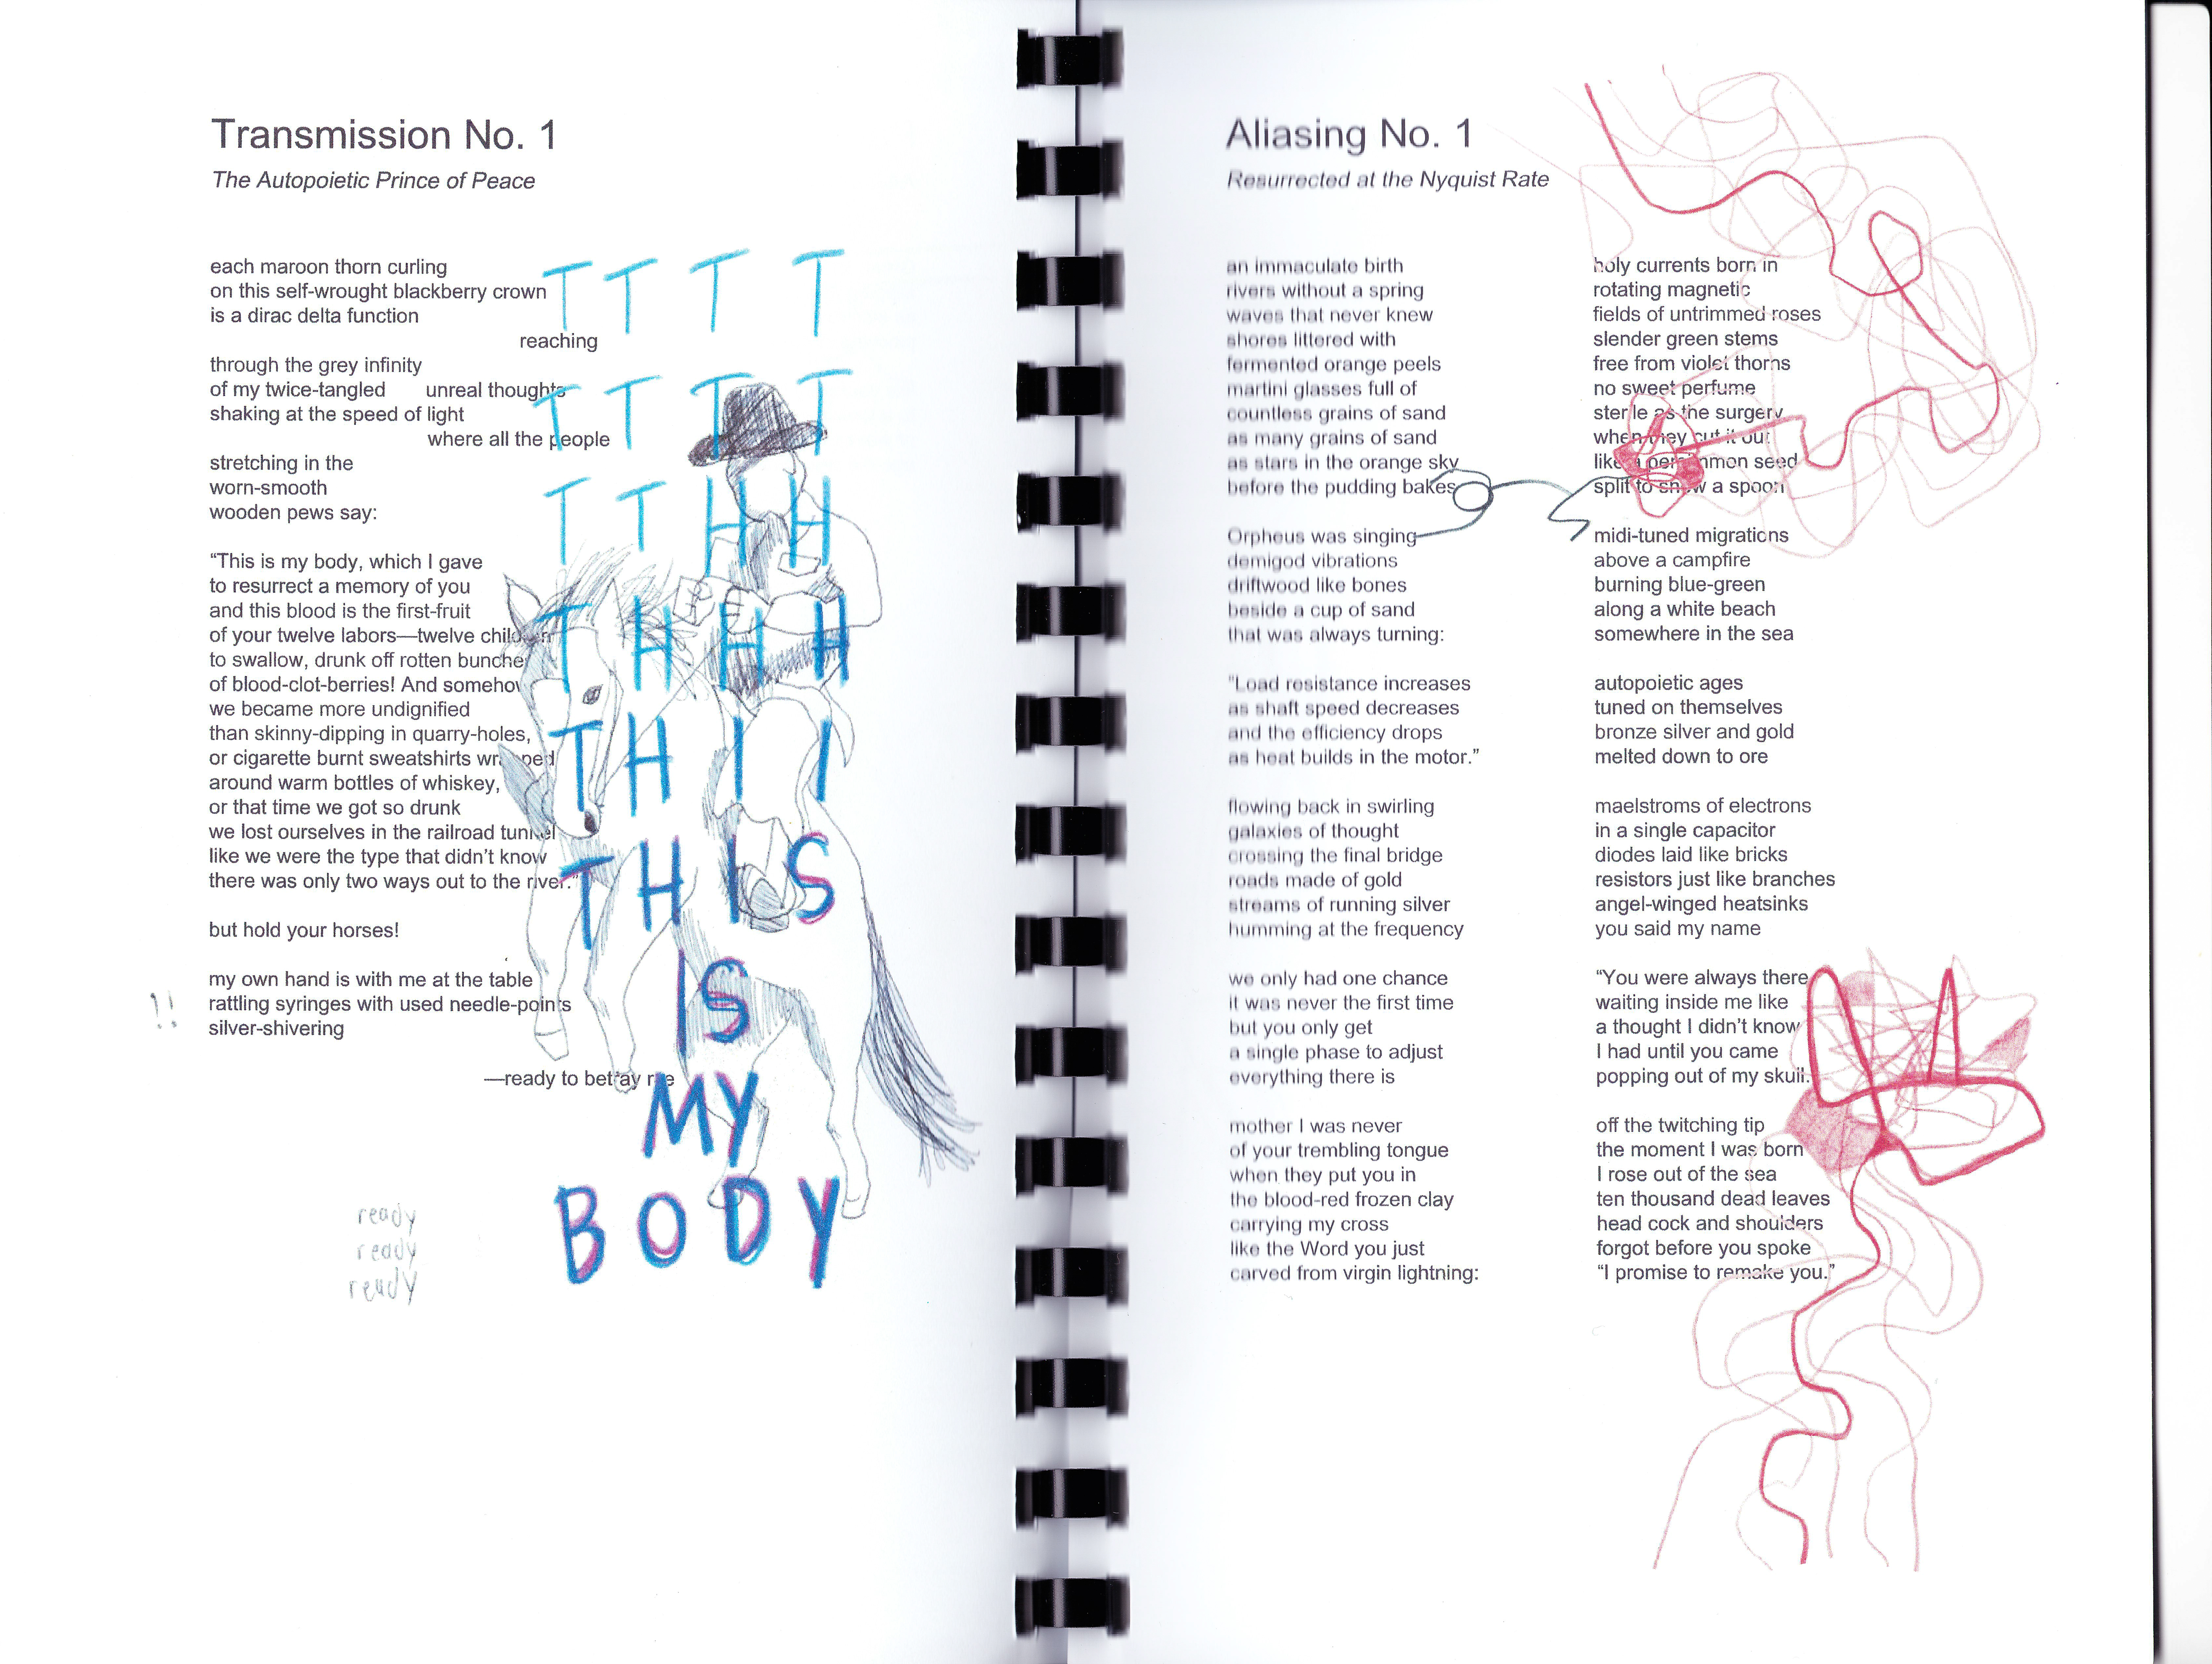 Transmission No. 1
The Autopoietic Prince of Peace
each maroon thorn curling
on this self-wrought blackberry crown
is a dirac delta function
reaching
through the grey infinity
of my twice-tangled unreal thoughts
shaking at the speed of light
where all the people
stretching in the
worn-smooth
wooden pews say:
“This is my body, which I gave
to resurrect a memory of you
and this blood is the first-fruit
of your twelve labors—twelve children
to swallow, drunk off rotten bunches
of blood-clot-berries! And somehow
we became more undignified
than skinny-dipping in quarry-holes,
or cigarette burnt sweatshirts wrapped
around warm bottles of whiskey,
or that time we got so drunk
we lost ourselves in the railroad tunnel
like we were the type that didn’t know
there was only two ways out to the river.”
but hold your horses!
my own hand is with me at the table
!! rattling syringes with used needle-points
silver-shivering
—ready to betray me
ready
ready
ready
T T T T
T T T T
T T H H
T H H H
T H I I
T H I S
IS
MY
BODY
Aliasing No. 1
Resurrected at the Nyquist Rate
an immaculate birth
rivers without a spring
waves that never knew
shores littered with
fermented orange peels
martini glasses full of
countless grains of sand
as many grains of sand
as stars in the orange sky
before the pudding bakes
Orpheus was singing
demigod vibrations
driftwood like bones
beside a cup of sand
that was always turning:
"Load resistance increases
as shaft speed decreases
and the efficiency drops
as heat builds in the motor.”
flowing back in swirling
galaxies of thought
crossing the final bridge
roads made of gold
streams of running silver
humming at the frequency
we only had one chance
it was never the first time
but you only get
a single phase to adjust
everything there is
mother I was never
of your trembling tongue
when they put you in
the blood-red frozen clay
carrying my cross
like the Word you just
carved from virgin lightning:
holy currents born in
rotating magnetic
fields of untrimmed roses
slender green stems
free from violet thorns
no sweet perfume
sterile as the surgery
when they cut it out
like a persimmon seed
split to show a spoon
midi-tuned migrations
above a campfire
burning blue-green
along a white beach
somewhere in the sea
autopoietic ages
tuned on themselves
bronze silver and gold
melted down to ore
maelstroms of electrons
in a single capacitor
diodes laid like bricks
resistors just like branches
angel-winged heatsinks
you said my name
“You were always there
waiting inside me like
a thought I didn’t know
I had until you came
popping out of my skull.
off the twitching tip
the moment I was born
I rose out of the sea
ten thousand dead leaves
head cock and shoulders
forgot before you spoke
“I promise to remake you.”